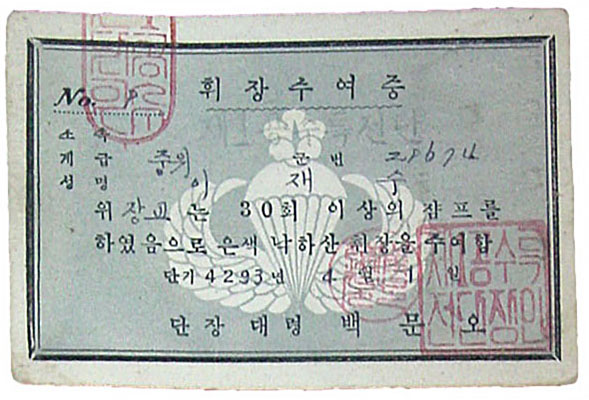 휘장수여증
No. 8
소속 제1공수특전단
계급 중위 군번 208674
성명 이재수
위 장교는 30회 이상의 잠프를
하였음으로 은색 낙하산 휘장을 수여함
단기 4293년 4월 1일
단장 대령 백문오